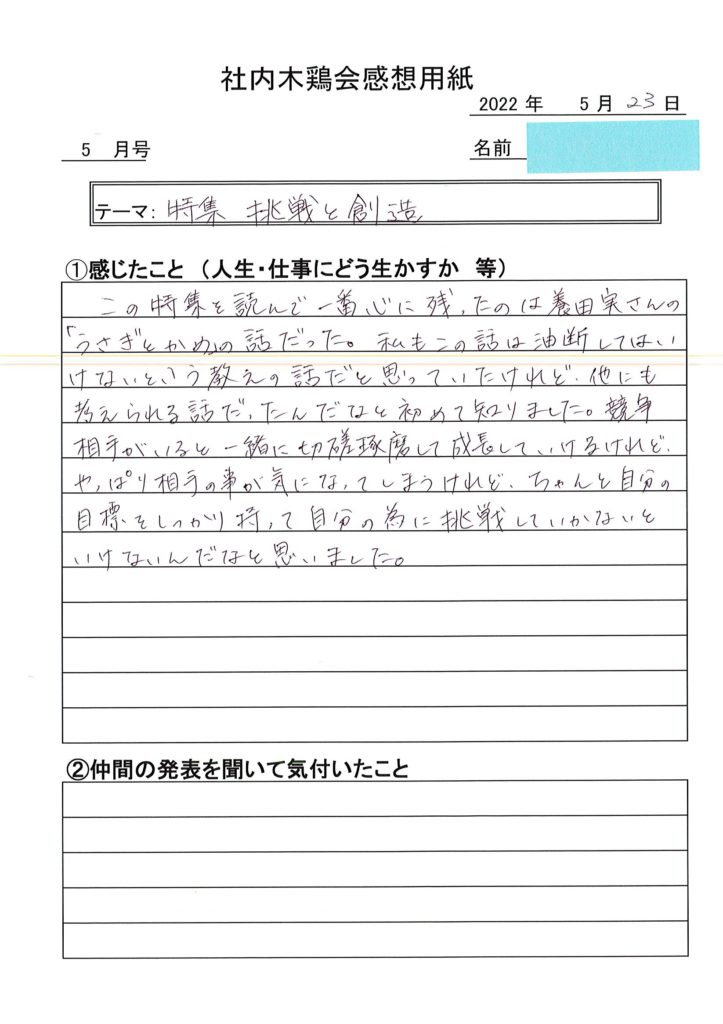 社内木鶏会感想用紙
2022 年 5 月 23 日
5 月号
名前
テーマ: 特集 挑戦と創造
①感じたこと （人生・仕事にどう生かすか 等）
この特集を読んで一番心に残ったのは養田実さんの
「うさぎとかめ」の話だった。私もこの話は油断してはい
けないという教えの話だと思っていたけれど、他にも
考えられる話だったんだなと初めて知りました。競争
相手がいると一緒に切磋琢磨して成長していけるけれど、
やっぱり相手の事が気になってしまうけれど、ちゃんと自分の
目標をしっかり持って自分の為に挑戦していかないと
いけないんだなと思いました。
②仲間の発表を聞いて気付いたこと